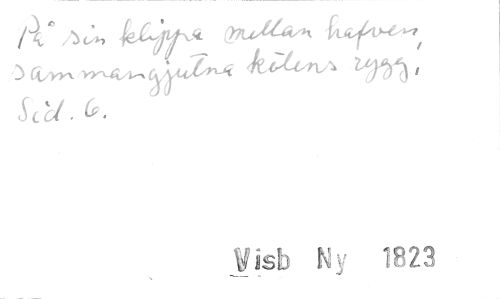 På sin klippa mellan hafven,
sammangjutna kölens rygg,
Sid. 6.
Visb Ny 1823